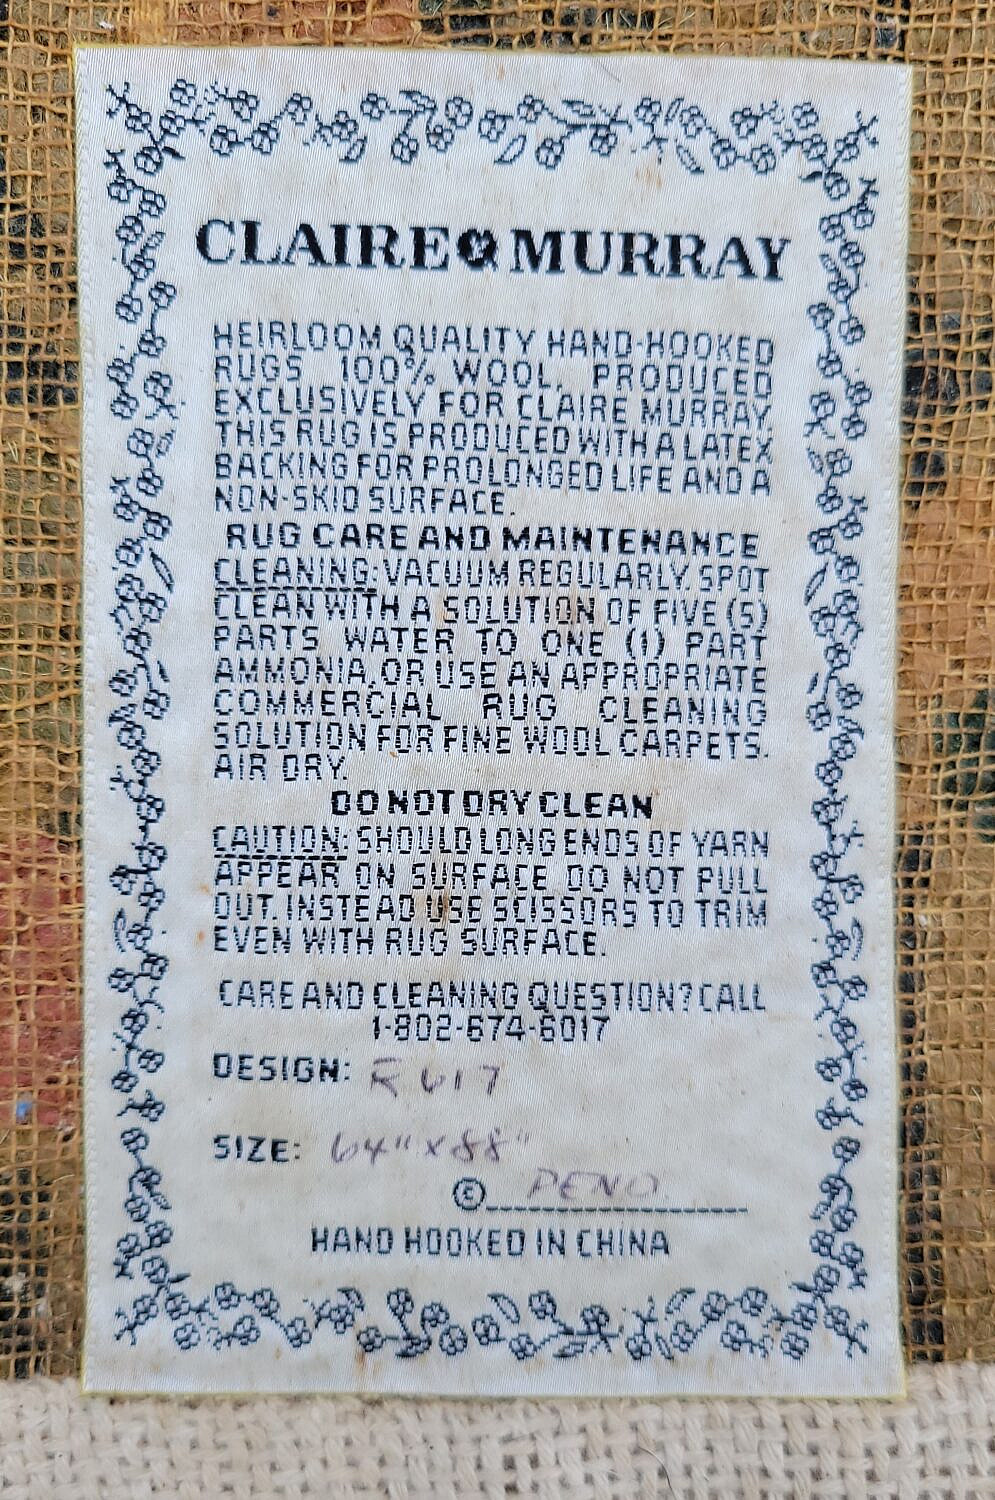 CLAIRE MURRAY
HEIRLOOM QUALITY HAND-HOOKED
RUGS 100% WOOL, PRODUCED
EXCLUSIVELY FOR CLAIRE MURRAY.
THIS RUG IS PRODUCED WITH A LATEX
BACKING FOR PROLONGED LIFE AND A
NON-SKID SURFACE.
RUG CARE AND MAINTENANCE
CLEANING: VACUUM REGULARLY. SPOT
CLEAN WITH A SOLUTION OF FIVE (5)
PARTS WATER TO ONE (1) PART
AMMONIA, OR USE AN APPROPRIATE
COMMERCIAL RUG CLEANING
SOLUTION FOR FINE WOOL CARPETS.
AIR DRY.
DO NOT DRY CLEAN
CAUTION: SHOULD LONG ENDS OF YARN
APPEAR ON SURFACE DO NOT PULL
OUT. INSTEAD USE SCISSORS TO TRIM
EVEN WITH RUG SURFACE.
CARE AND CLEANING QUESTION? CALL
1-802-674-6017
DESIGN: R617
SIZE: 64" x 88"
© PENO
HAND HOOKED IN CHINA